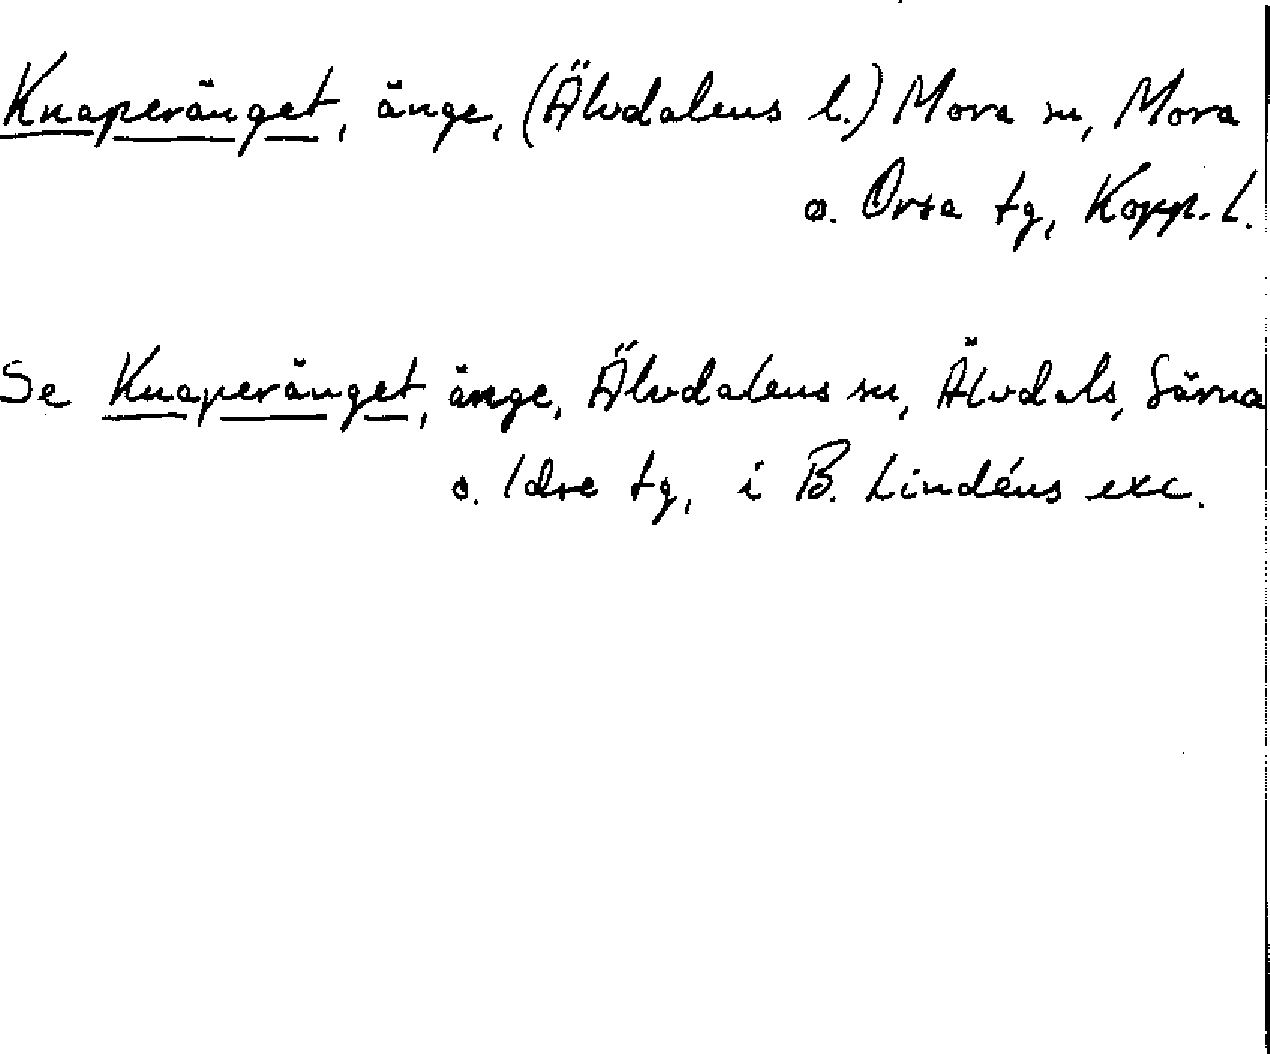 Knaperänget, änge, (Älvdalens l.) Mora sn, Mora
o. Orsa tg, Kopp. l.
Se Knaperänget, änge, Älvdalens sn, Älvdals, Särna
o. Idre tg, i B. Lindéns exc.